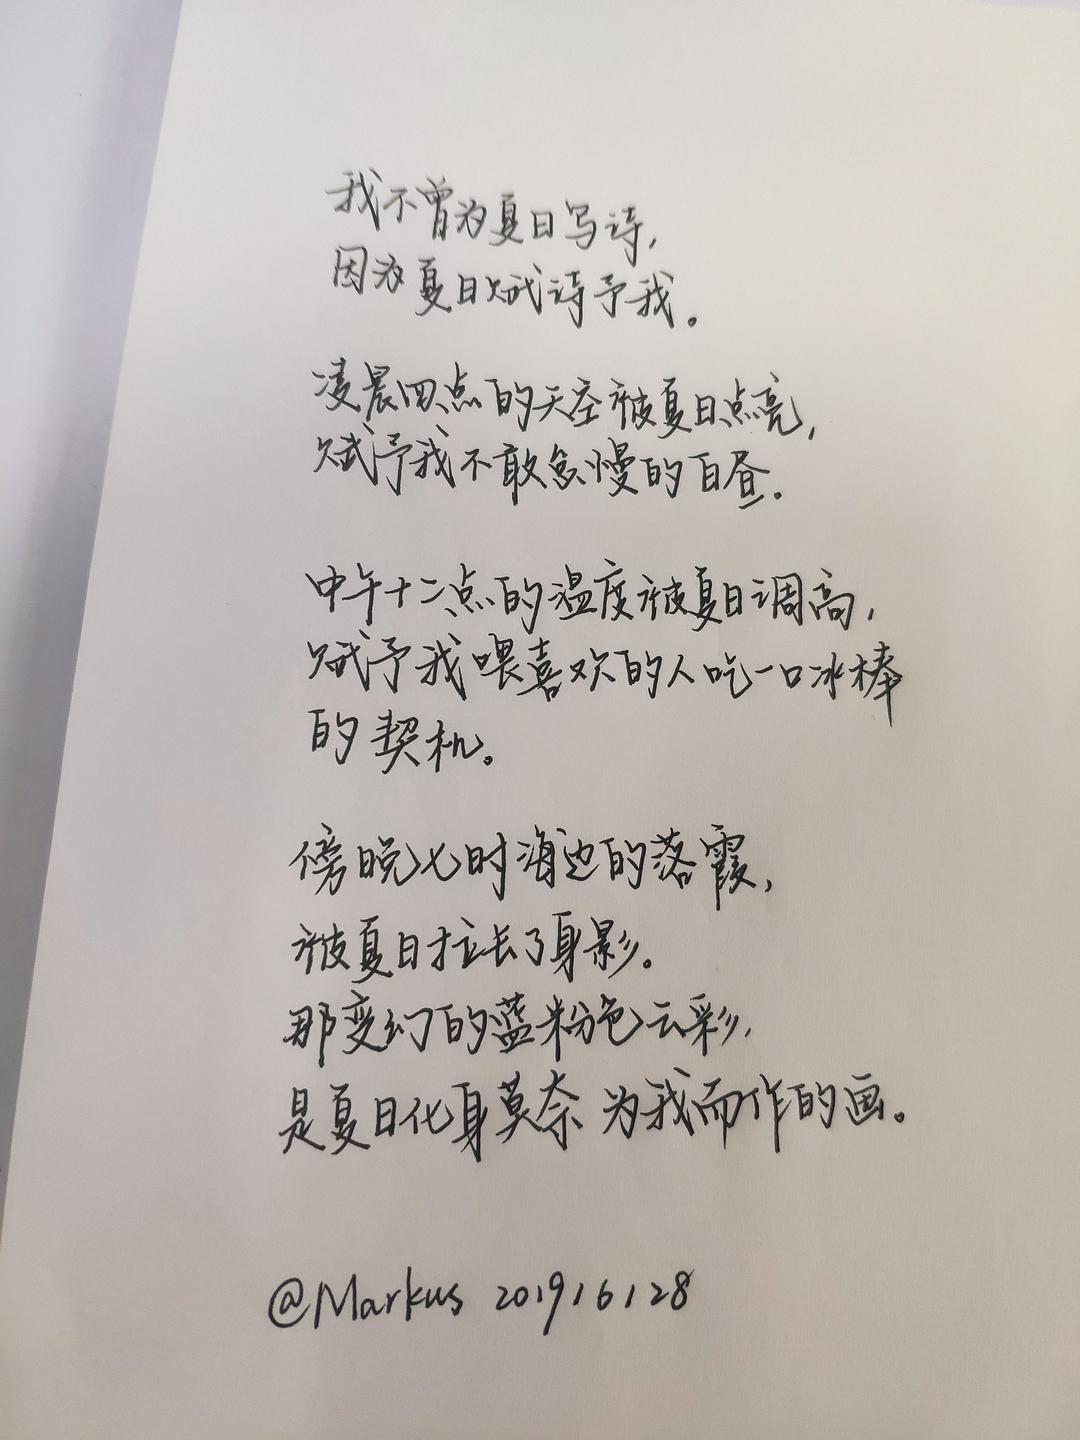 我不曾为夏日写诗,
因为夏日赋诗予我。
凌晨四点的天空被夏日点亮,
赋予我不敢怠慢的白昼。
中午十二点的温度被夏日调高,
赋予我喂喜欢的人吃一口冰棒
的契机。
傍晚七时海边的落霞,
被夏日拉长了身影。
那变幻的蓝粉色云彩,
是夏日化身莫奈 为我而作的画。
@Markus 2019/6/28